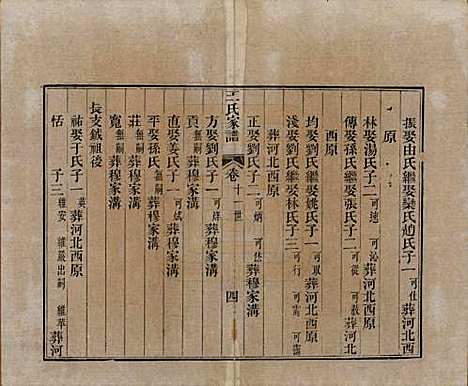 振娶由氏繼娶欒氏趙氏子一可仕葬河北西
原
林娶湯氏子二可地 可沁葬河北西原
傅娶孫氏繼娶張氏子二可從 可 葬河北
西原
均娶劉氏繼娶姚氏子一可取葬河北西原
淺娶劉氏繼娶林氏子三可行 可 可
葬河北西原
正娶劉氏子二可炳 可 葬穆家溝
王氏家譜 卷 十一世 四
方娶劉氏子一可 葬穆家溝
貢無嗣葬穆家溝
直娶姜氏子一可 葬穆家溝
平娶孫氏無嗣葬穆家溝
莊無嗣葬穆家溝
寬無嗣葬穆家溝
長支鉞祖後
祐娶于氏子一 葬河北西原
恬 子三維安 維嚴出嗣 維華葬河